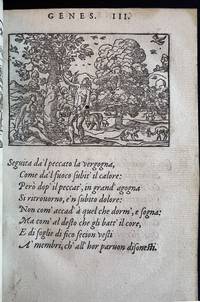 GENES. III.
Seguita da'l peccato la vergogna,
Come da'l fuoco subit' il calore:
Però dop' il peccat', in grand' agogna
Si ritrouorno, e'n subito dolore:
Non com' accad' à quel che dorm', e sogna:
Ma com' al desto che gli batt' il core,
E di foglie di fico fecion vesti
A' membri, ch' all' hor paruon disonesti.